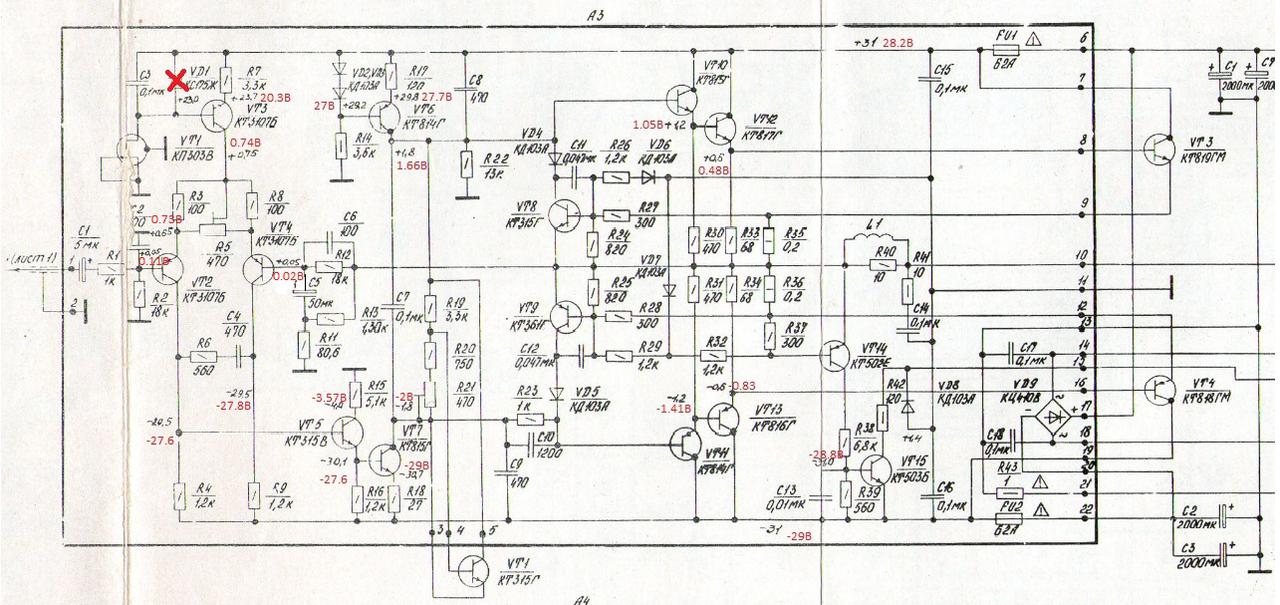 А3
С3
0,1мк
VD1
КС175Ж
R7
3,3к
+23,7 20.3В
+23,0
VT3
КТ3107Б
VT1
КП303В
0.74В
+0,75
R3
100
R8
100
0.73В
+0,65
R5
470
VT4
КТ3107Б
С1
5 мк
(лист1)
1
R1
1к
2
R2
18к
+0,05
0.11В
VT2
КТ3107Б
+0,05
0.02В
С6
100
R12
18к
С5
50мк
R13
1,30к
R11
80,6
С4
470
R6
560
-29,5
-27.8В
-27.6
R4
1,2к
R9
1,2к
VD2,VD3
КД103А
27В
+29,2
R14
3,6к
R17
120
+29,8 27.7В
VT6
КТ814Г
+1,8
1.66В
С8
470
R22
13к
С7
0,1мк
R19
3,3к
R20
750
R21
470
R15
5,1к
-3.57В
-2В
-1,3
VT5
КТ315В
VT7
КТ815Г
-30,1
-27.6
-29В
-30,7
R16
1,2к
R18
27
3
4
5
VT1
КТ315Г
А4
VD4
КД103А
С11
0,047мк
R26
1,2к
VD6
КД103А
VT8
КТ315Г
R27
300
R24
820
R25
820
VD7
КД103А
VT9
КТ361Г
R28
300
С12
0,047мк
R29
1,2к
R32
1,2к
R23
1к
VD5
КД103А
С10
1200
С9
470
VT10
КТ815Г
1.05В +1,2
VT12
КТ817Г
+0,6
0.48В
R30
470
R33
68
R35
0,2
R31
470
R34
68
R36
0,2
R37
300
-0,6 -0.83
-1,2
-1.41В
VT13
КТ816Г
VT11
КТ814Г
+31 28.2В
С15
0,1мк
FU1
62А
L1
R40
10
R41
10
С14
0,1мк
VT14
КТ502Е
R42
120
VD8
КД103А
+1,4
R38
6,8к
-28.8В
VT15
КТ503Б
С13
0,01мк
R39
560
-31
-29В
С16
0,1мк
С17
0,1мк
VD9
КЦ410В
С18
0,1мк
R43
1
FU2
62А
6
7
8
9
10
11
12
13
14
15
16
17
18
19
20
21
22
С1
2000мк
VT3
КТ819ГМ
VT4
КТ818ГМ
С2
2000мк
С3
2000мк